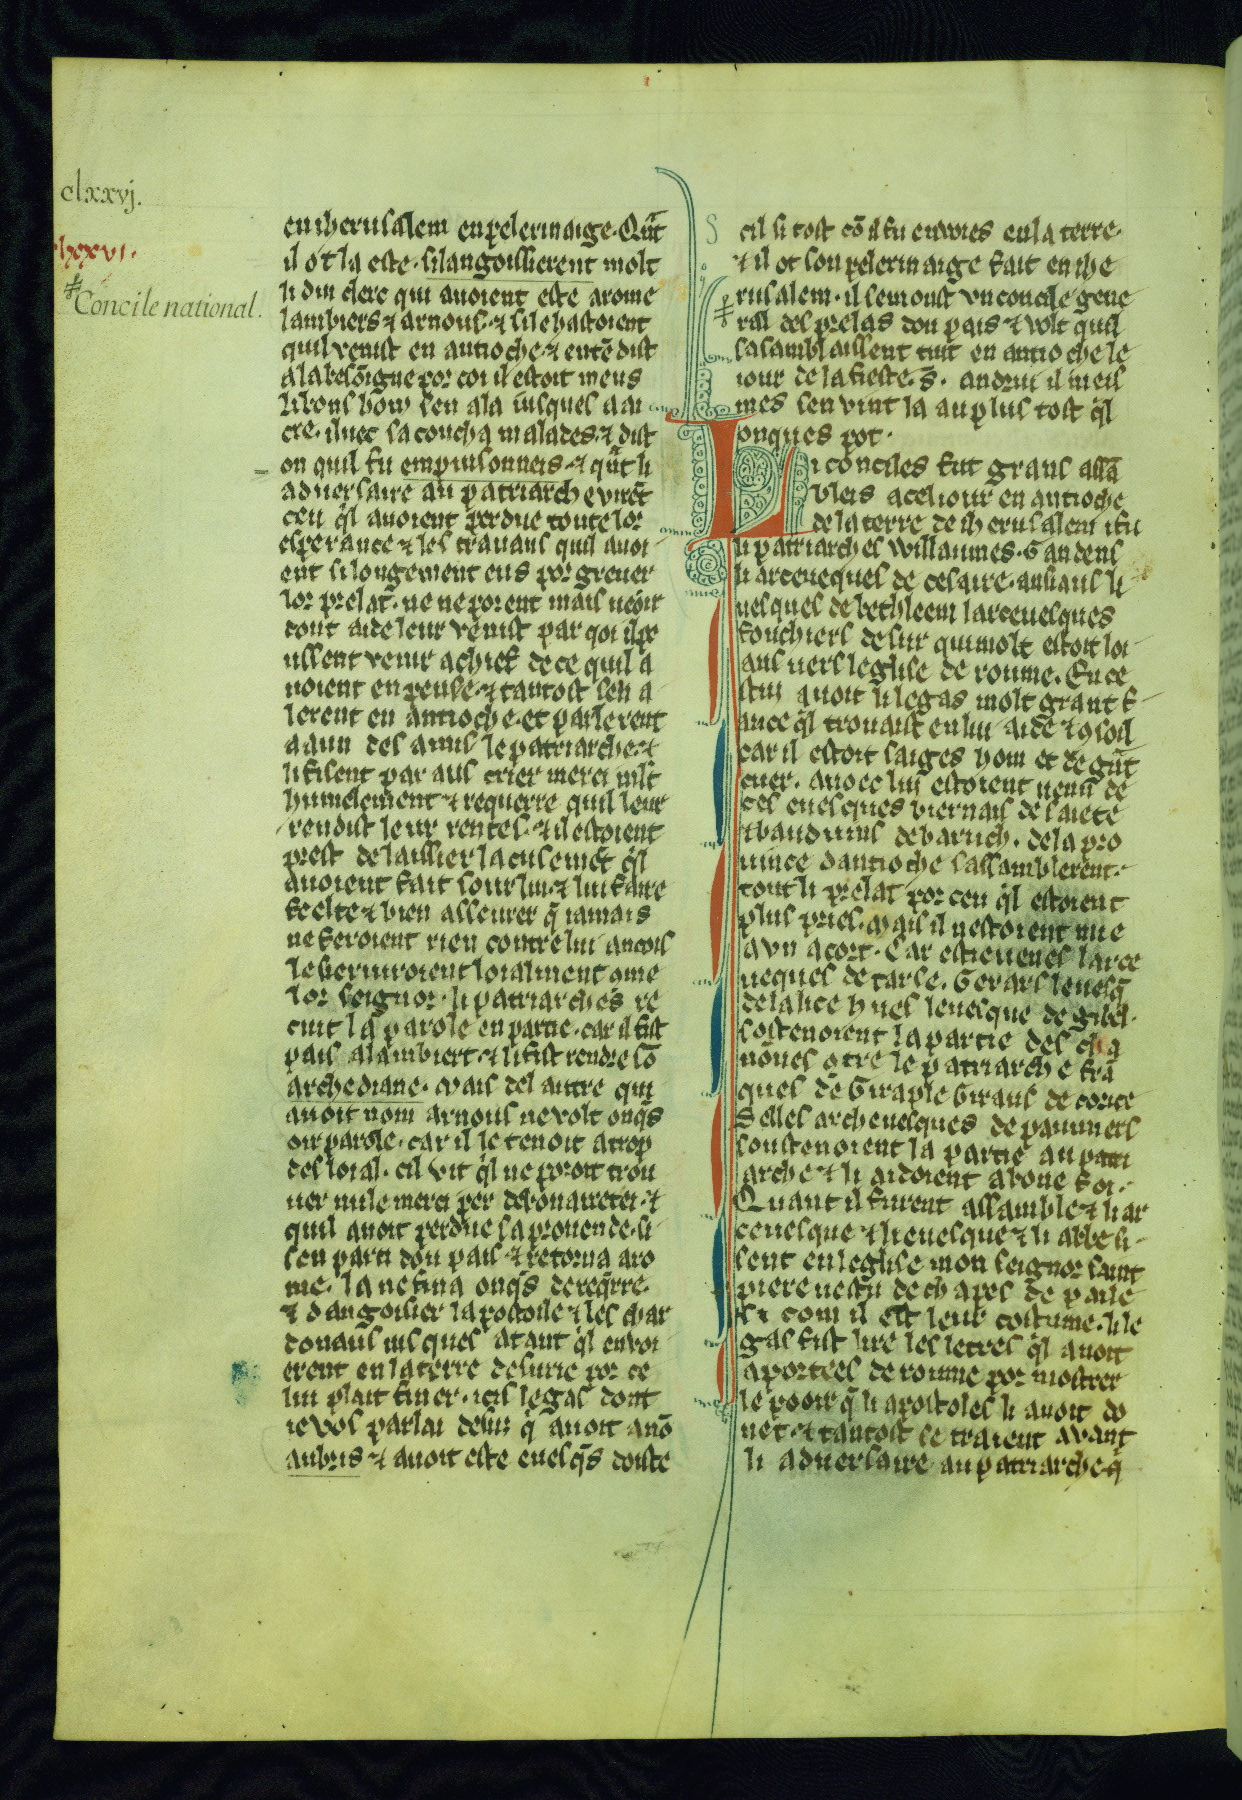 clxxvj.
lxxxvi.
Concile national.
en iherusalem en pelerinaige. Qu̅t
il ot la este. si langoissierent molt
li dui clerc qui auoient este a rome
lambiers ⁊ arnous. ⁊ si le hastoient
quil venist en antioche. ⁊ ente̅dist
a la beso̅igne por coi il estoit meus
li bons hom sen ala iusques a ai
cre. iluec sa coucha malades. ⁊ dist
on quil fu empuisonneis. ⁊ qu̅t li
aduersaire au patriarche vire̅t
ceu q̇l auoient perdue toute lor
esperance ⁊ les trauaus quil auoi
ent si longement eus por greuer
lor prelat. ne ne porent mais ueoir
dont aide leur venist par qoi il po
ussent venir a chief de ce quil a
uoient en pense. ⁊ tantost sen a
lerent en antioche. et parlerent
a aun des amis le patriarche. ⁊
li fisent par aus crier merci mlt
humelement ⁊ requerre quil leur
rendist leur rentes. ⁊ il estoient
prest de laissier lacuseme̅t q̇l
auoient fait sour lui. ⁊ lui faire
feelte ⁊ bien asseurer q̅ iamais
ne feroient rien contre lui ancois
le seruiroient loialment ome
lor seignor. li patriarches re
cuit la parole en partie. car il fist
pais a lambiert. ⁊ li fist rendre so̅
archediane. Mais del autre qui
auoit nom arnous ne volt onq̅s
oir parole. car il le tenoit a trop
des loial. cil vit q̇l ne poroit trou
uer nule merci per debonairetei. ⁊
quil auoit perdue sa prouende. si
sen parti dou pais ⁊ retorna a ro
me. la ne fina onq̅s de req̅rre.
⁊ dangoisier la postoile ⁊ les char
donaus iusques a tant q̇l enuoi
erent en la terre de surie por ce
lui plait finer. icis legas dont
ie vos parlai desus q̅ auoit a no̅
aubris ⁊ auoit este euesq̅s doste
cil si tost co̅ il fu enuoies en la terre.
⁊ il ot son pelerinaige fait en ihe
rusalem. il semonst vn concile gene
ral des prelas dou pais ⁊ volt quil
sasamblaissent tuit en antioche le
iour de la fieste. s̅. andriu il meis
mes sen vint la au plus tost q̇l
onques pot.
Li conciles fut grans assa̅
bleis a cel iour en antioche
de la terre de iherusalem i fu
li patriarches willaumes. Gaudens
li arceuesques de cesaire. ansiaus li
uesques de bethleem larceuesques
fouchiers de sur qui molt estoit loi
aus uers leglise de roume. En ce
stui auoit li legas molt grant f
iance q̇l trouaist en lui aide ⁊ 9soil
car il estoit saiges hom et de gra̅t
cuer. Auoec lui estoient uenu de
ces euesques biernais de saiete
⁊ bauduins de baruch. de la pro
uince dantioche sassamblerent
tout li prelat por ceu q̇l estoient
plus pries. Mais il nestoient mie
a vn acort. Car estieuenes larce
uesques de tarse. Gerars leuesq̅
de la lice hues leuesque de gibel.
sostenoient la partie des cha
no̅nes 9tre le patriarche fra̅
ques de Giraple Giraus de corice
Selles archeuesques de paumiers
soustenoient la partie au patri
arche ⁊ li aidoient a bone foi.
Quant il furent assamble ⁊ li ar
ceuesque ⁊ li euesque ⁊ li abbe si
sent en leglise mon seignor saint
piere uestu de chapes de paile
si com il est leur costume. li le
gas fist lire les letres q̇l auoit
aportees de roume por mostrer
le pooir q̅ li apostoles li auoit do
net. ⁊ tantost se traient auant
li aduersaire au patriarche. q̅